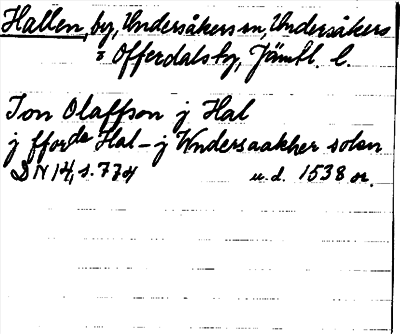 Hallen, by, Undersåkers sn, Undersåkers
o Offerdals tg, Jämtl. l.
Jon Olaffson j Hal
j fforde Hal - j Wndersaakher sokn
DN 14, s. 774
u.d. 1538 or.